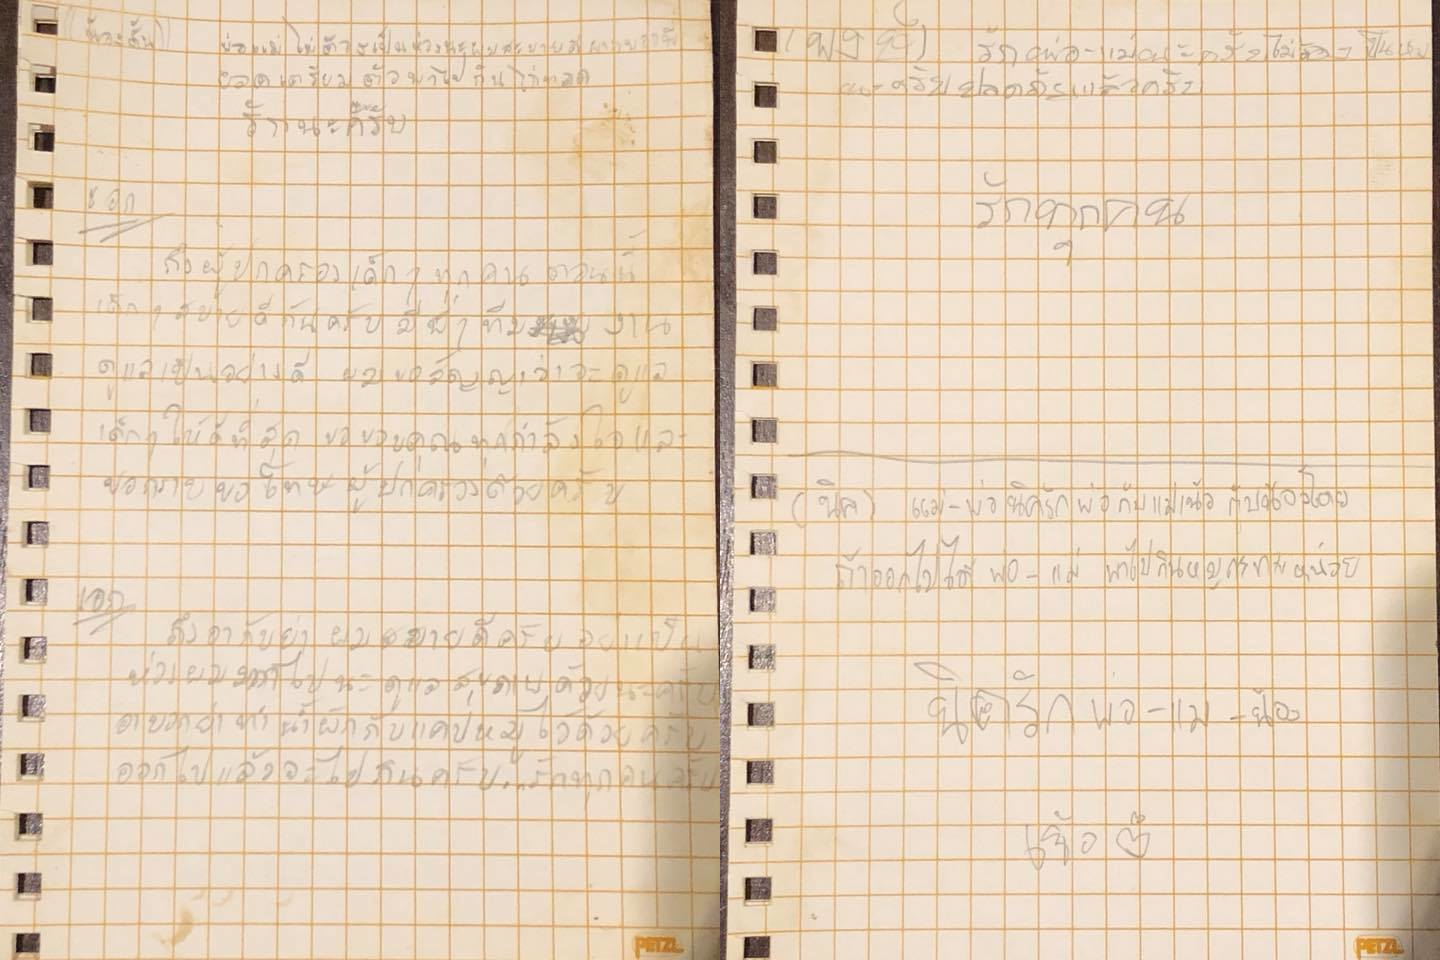 (น้องตั้น) พ่อแม่ไม่ต้องเป็นห่วงนะผมสบายดี
ยอดเตรียมตัวพาไปกินไก่ทอด
รักนะครับ
เอก
ถึงผู้ปกครองเด็กๆ ทุกคน ตอนนี้
เด็กๆ สบายดีกันครับ มีพี่ๆ ทีม งาน
ดูแลเป็นอย่างดี ผมขอสัญญาว่าจะดูแล
เด็กๆ ให้ดีที่สุด ขอขอบคุณทุกกำลังใจ และ
ขอกราบขอโทษผู้ปกครองด้วยครับ
เอก
ถึงอากับย่า ผมสบายดีครับ อย่าเป็น
ห่วงผม ไปนะดูแลสุขภาพด้วยนะครับ
อาบอกย่าทำน้ำผักกับแคปหมูไว้ด้วยครับ
ออกไปแล้วจะไปกินครับ...รักทุกคนครับ
PETZL
รักพ่อ-แม่นะครับไม่ต้อง
นะครับปลอดภัยแล้วครับ
รักทุกคน
(นิค) แม่-พ่อ นิครักพ่อกับแม่ กับน้องด้วย
ถ้าออกไปได้ พ่อ-แม่ พาไปกินหมูกระทะหน่อย
นิครักพ่อ-แม่-น้อง
PETZL